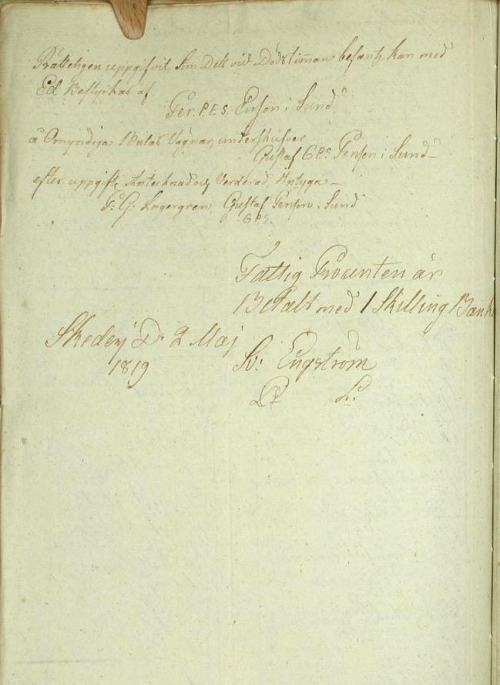 Rätteligen uppgifvit som Dett vid Dödstimman befantz, kan med
Ed Bestyrkas af
Per P.E.S. Ersson i Sund
å Omyndiga Barns Vägnar, underskrifver
Gustaf G P S Persson i Sund
efter uppgift, Antecknadt, Verderad, intyga
G: Lagergren Gustaf Persson i Sund
G P S.
Fattig Procenten är
Betalt med 1 Skilling Banko
Skedevj D. 2 Maj
1819
Sv: Engström